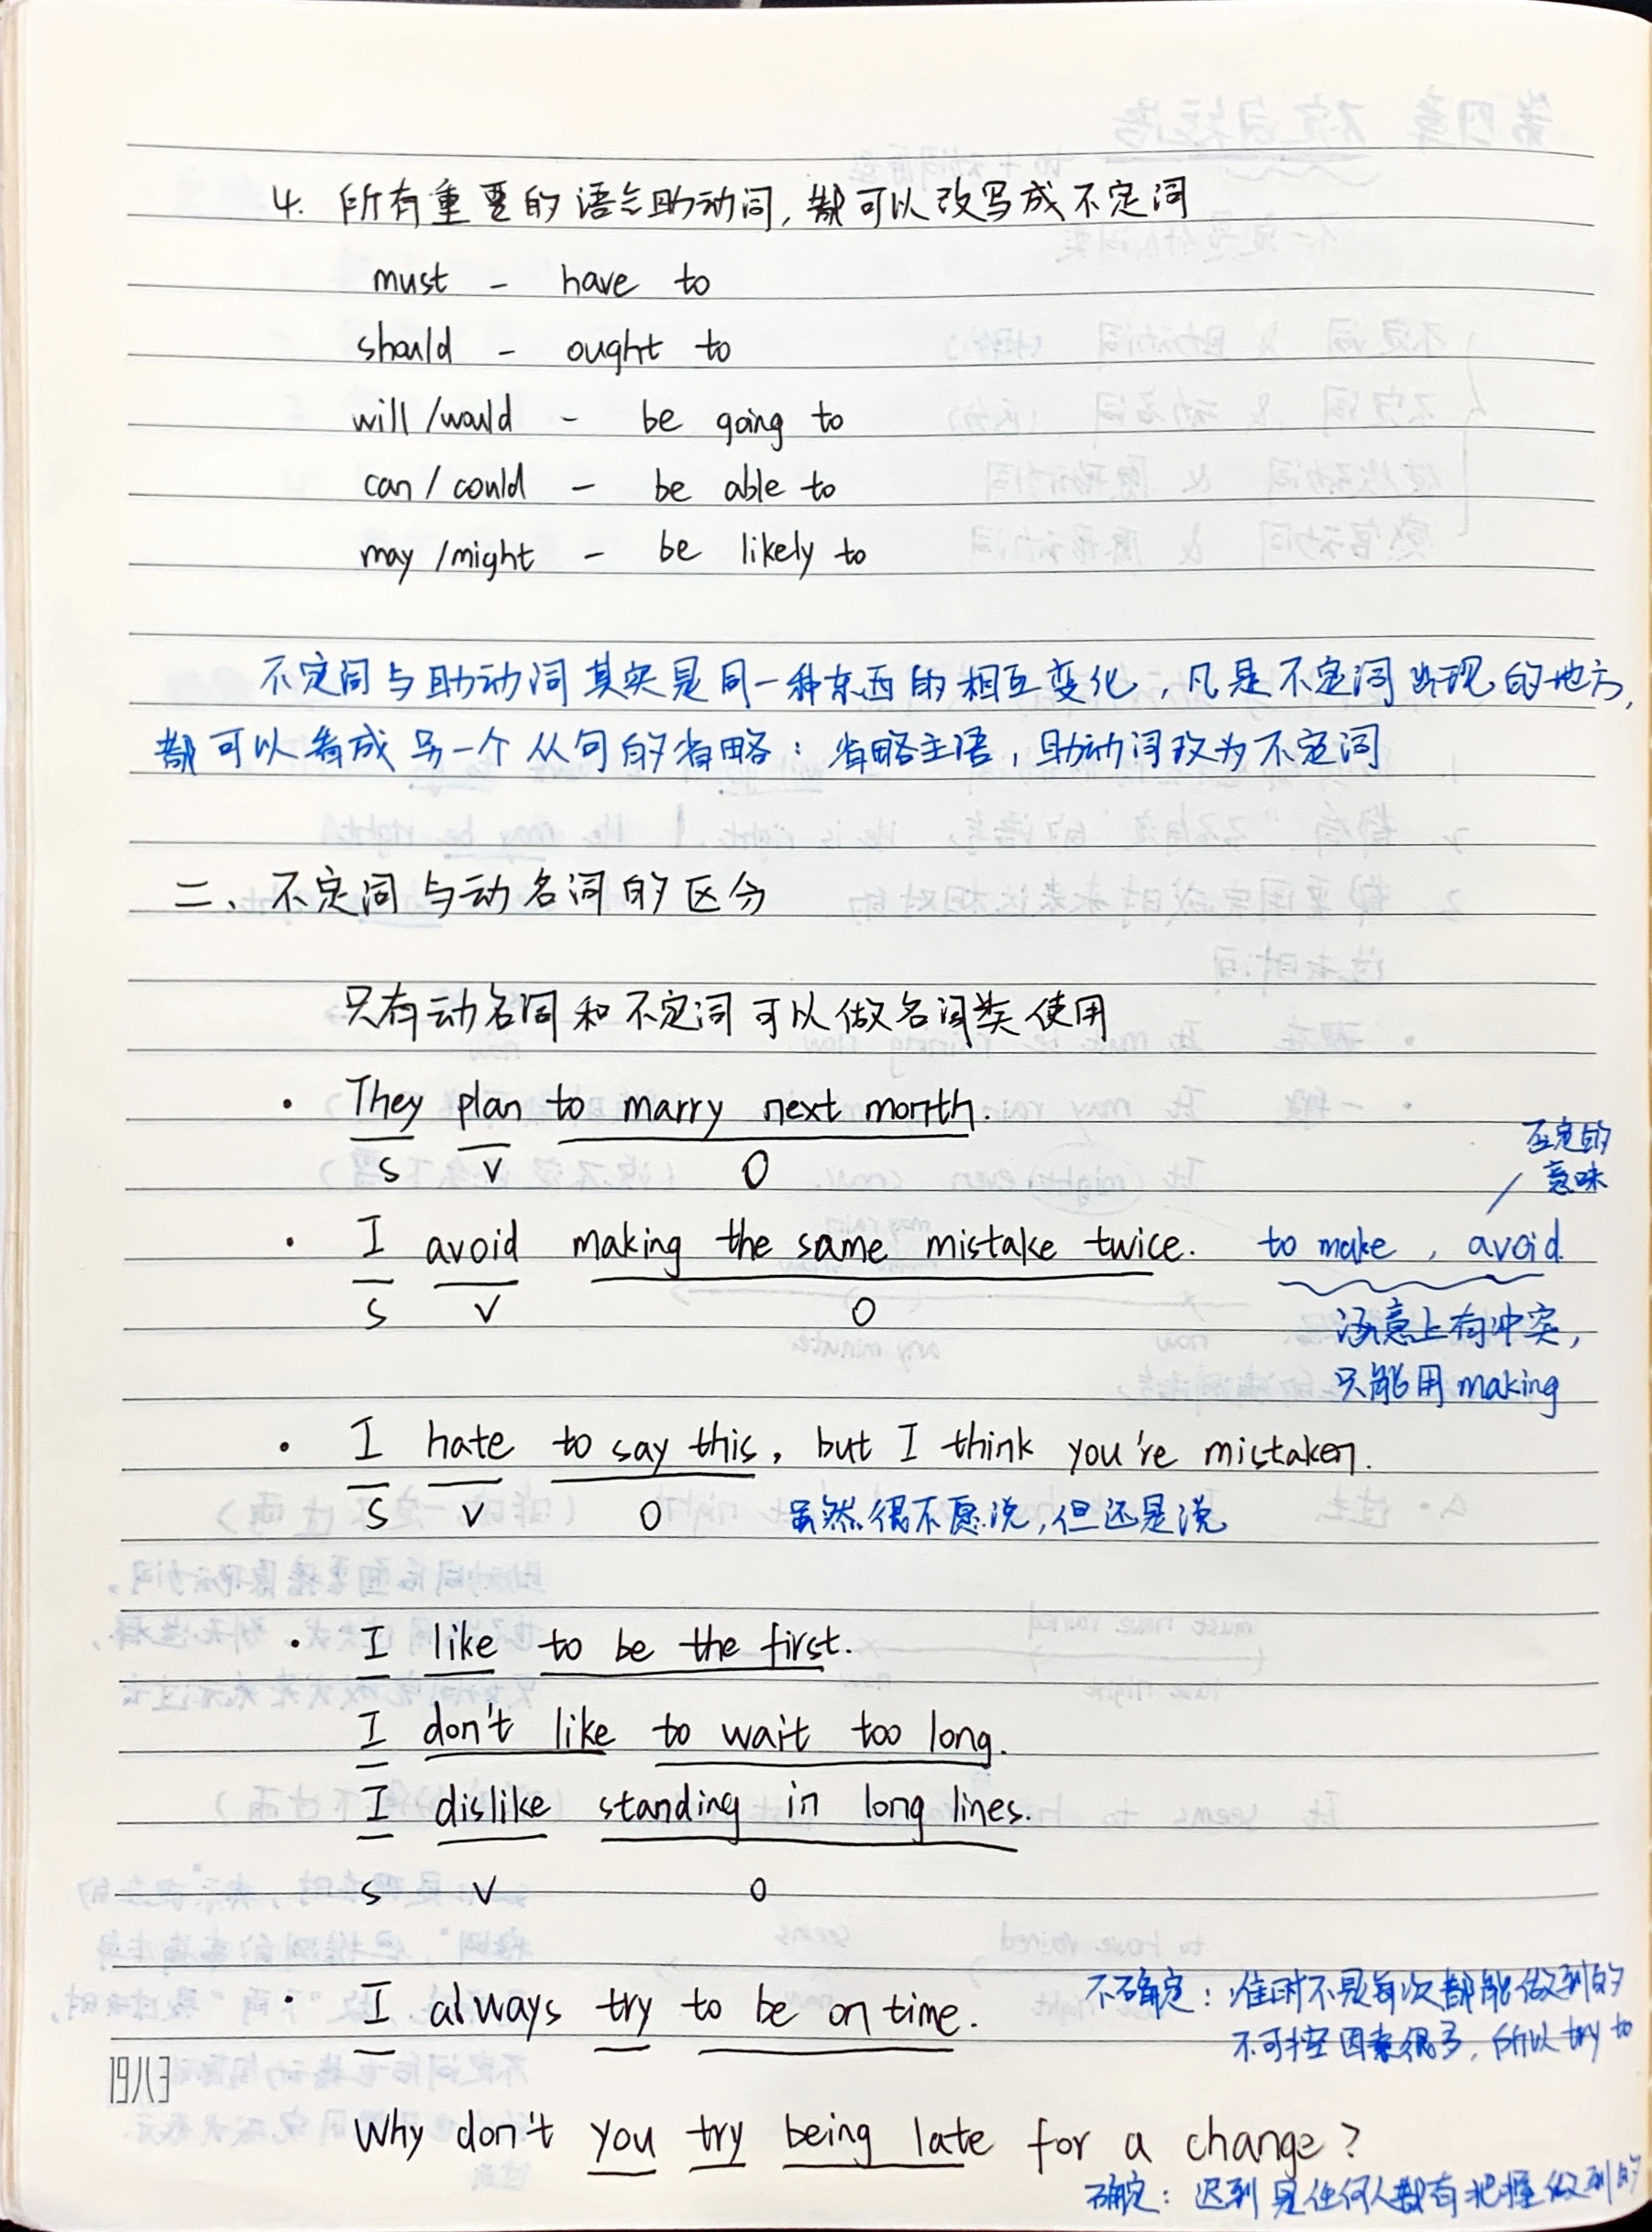 4. 所有重要的语气助动词，都可以改写成不定词
must - have to
should - ought to
will /would - be going to
can / could - be able to
may /might - be likely to
不定词与助动词其实是同一种东西的相互变化，凡是不定词出现的地方，
都可以看成另一个从句的省略：省略主语，助动词改为不定词
二、不定词与动名词的区分
只有动名词和不定词可以做名词类使用
· They plan to marry next month.
S V O
否定的
意味
· I avoid making the same mistake twice. to make , avoid
S V O
涵意上有冲突，
只能用 making
· I hate to say this, but I think you're mistaken.
S V O 虽然很不愿说，但还是说
· I like to be the first.
I don't like to wait too long.
I dislike standing in long lines.
S V O
· I always try to be on time.
不确定：准时不是每次都能做到的
不可控因素很多，所以 try to
Why don't you try being late for a change?
确定：迟到是任何人都有把握做到的